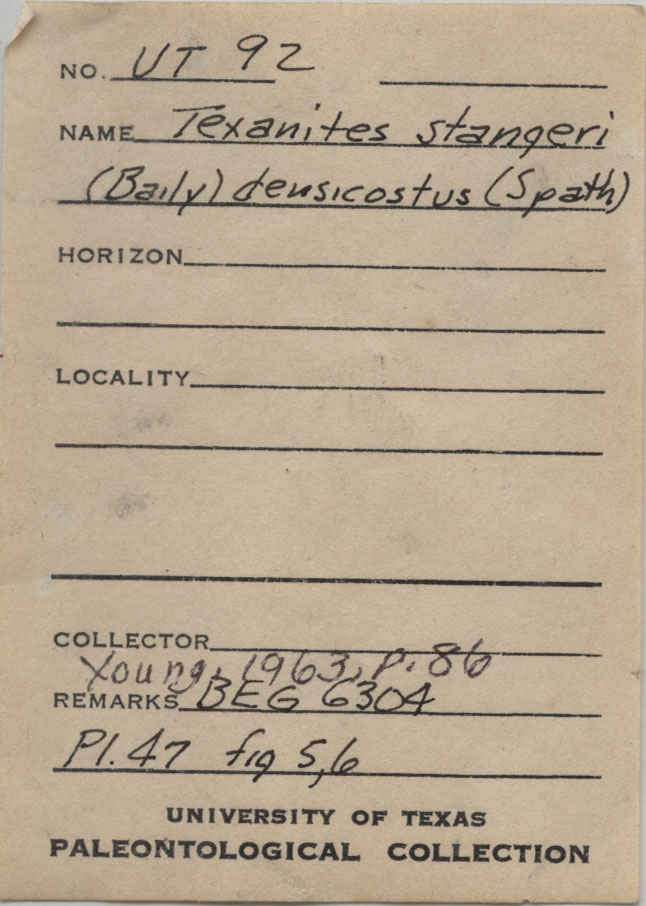 NO. UT 92
NAME Texanites stangeri
(Baily) densicostus (Spath)
HORIZON
LOCALITY
COLLECTOR
Young, 1963, p. 86
REMARKS BEG 6304
Pl. 47 fig 5,6
UNIVERSITY OF TEXAS
PALEONTOLOGICAL COLLECTION